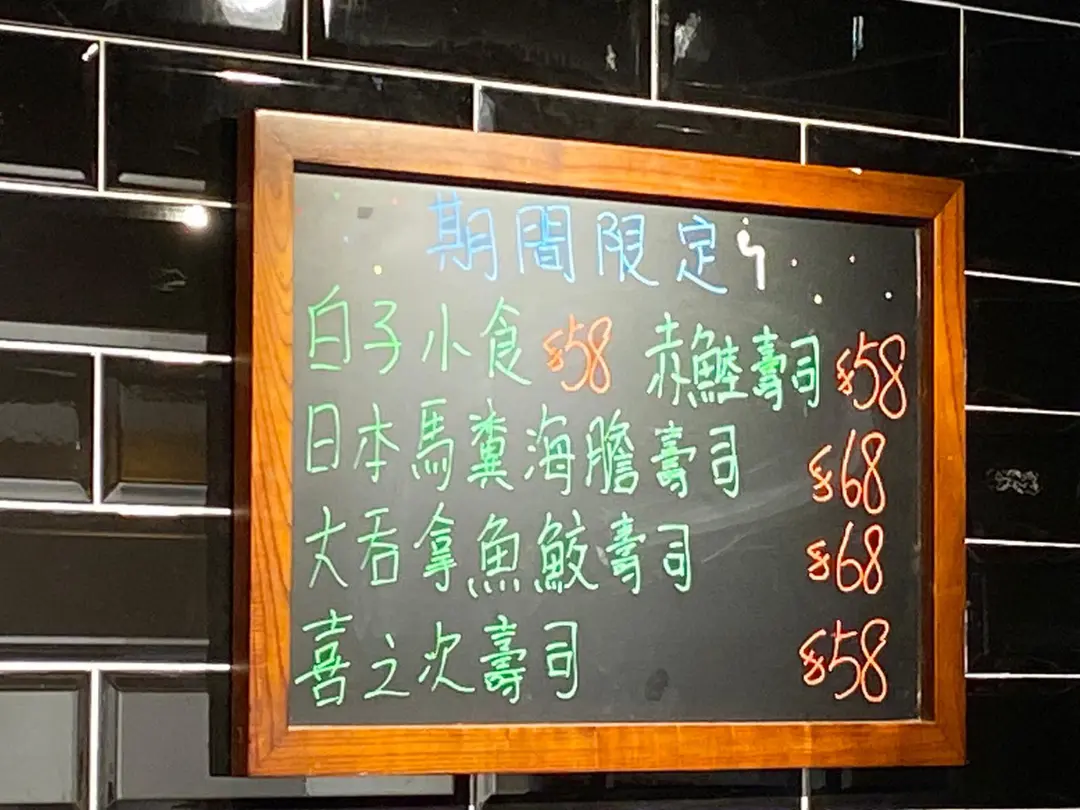 期間限定
白子小食 $58 赤鯥壽司 $58
日本馬糞海膽壽司 $68
大吞拿魚鮫壽司 $68
喜之次壽司 $58